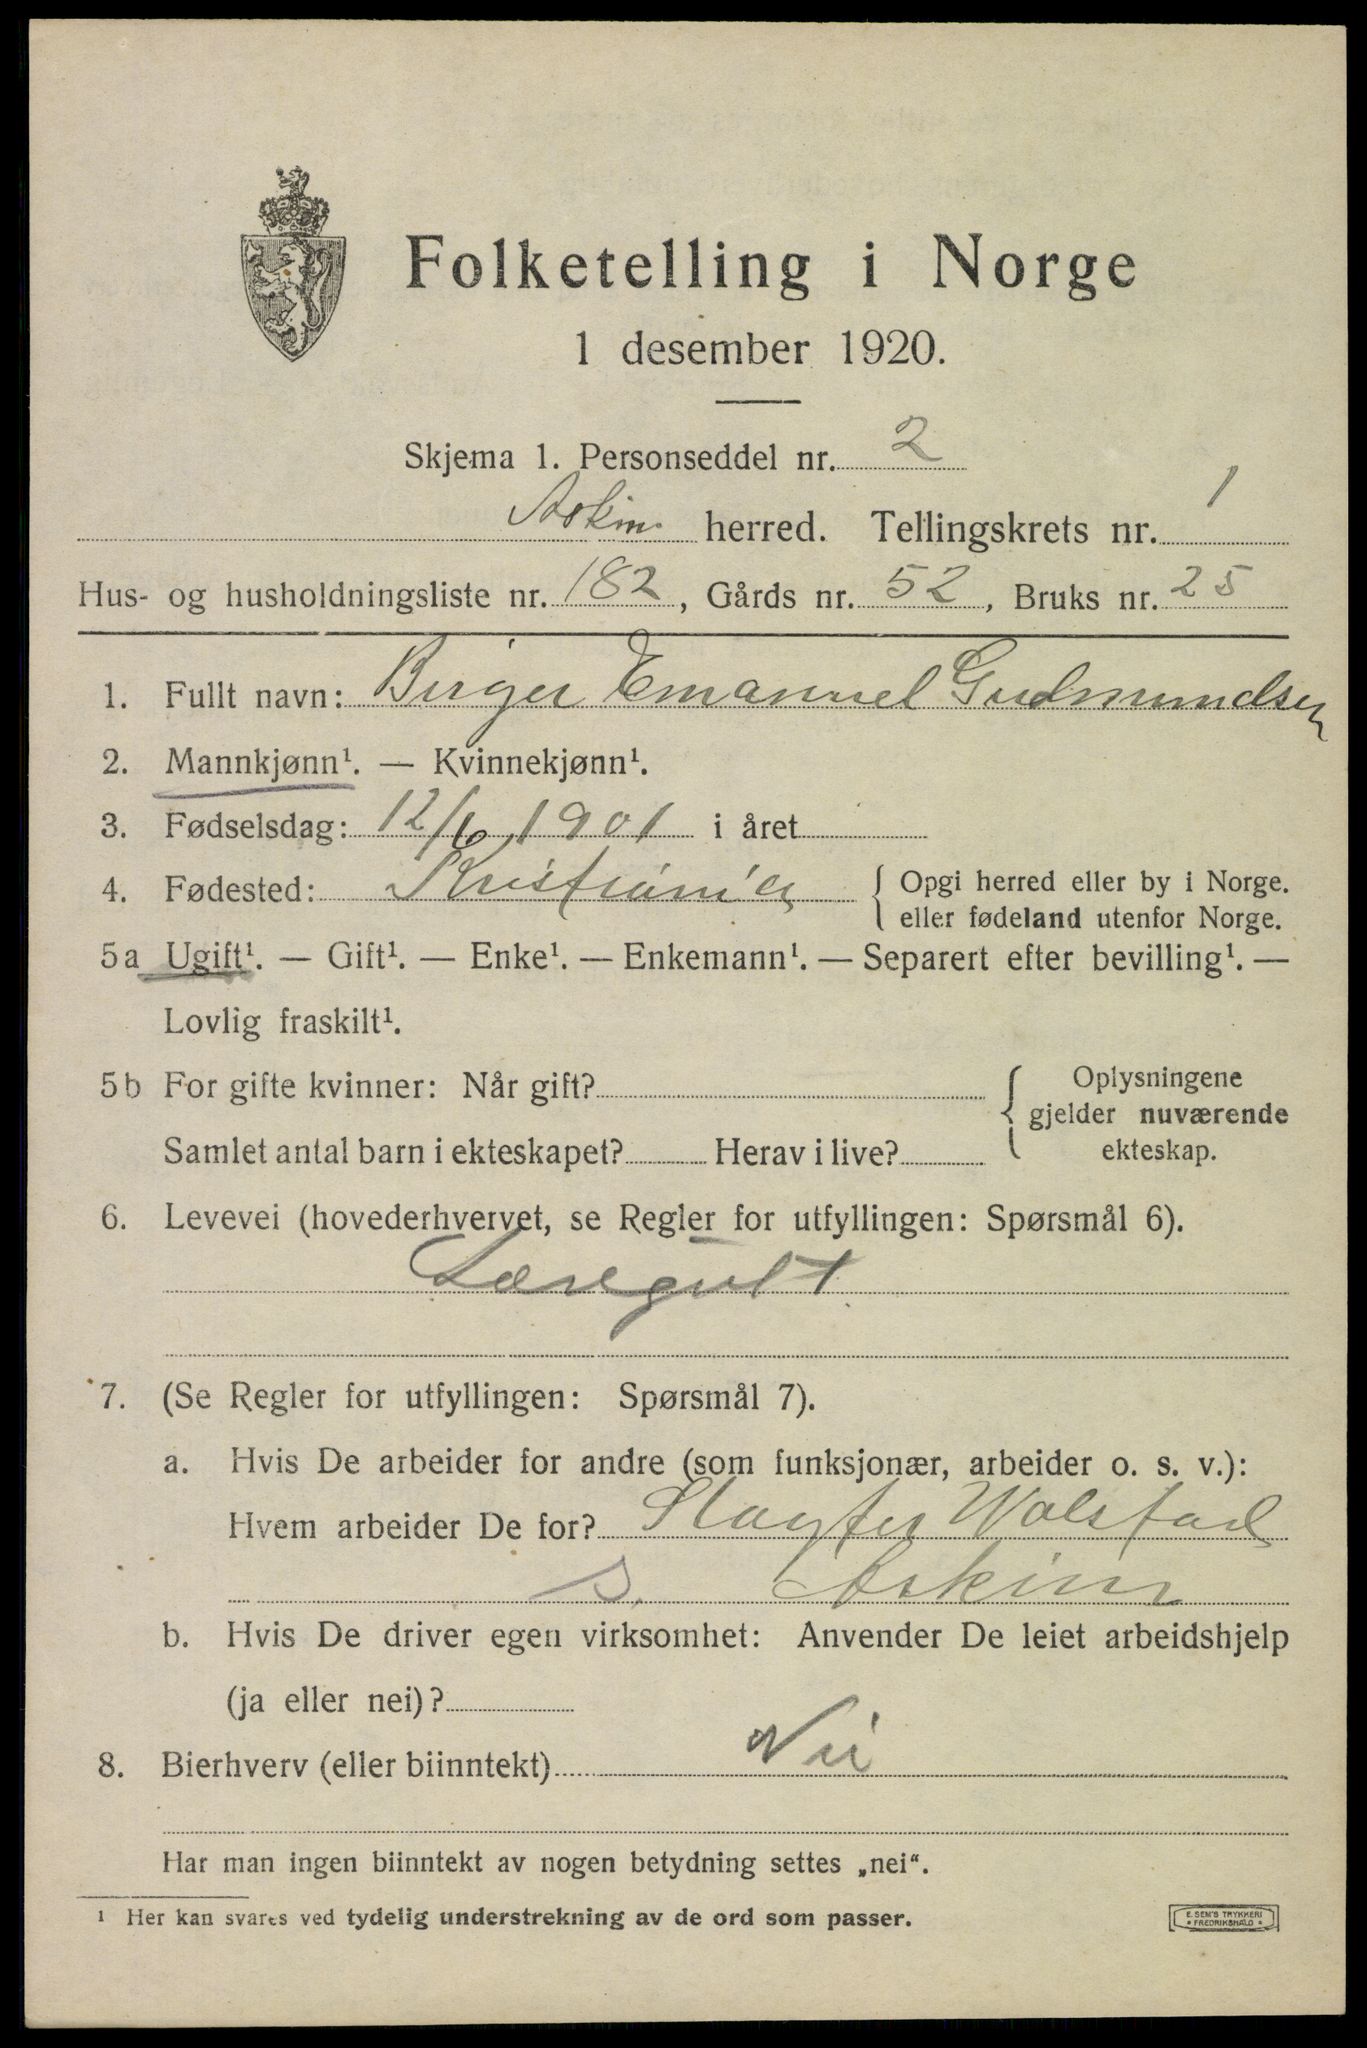 Folketelling i Norge
1 desember 1920.
Skjema 1. Personseddel nr. 2
Askim herred. Tellingskrets nr. 1
Hus- og husholdningsliste nr. 182, Gårds nr. 52, Bruks nr. 25
1. Fullt navn: Birger Emanuel Gudmundsen
2. Mannkjønn¹. — Kvinnekjønn¹.
3. Fødselsdag: 12/6 1901 i året
4. Fødested: Kristiania { Opgi herred eller by i Norge.
eller fødeland utenfor Norge.
5a Ugift¹. — Gift¹. — Enke¹. — Enkemann¹. — Separert efter bevilling¹. —
Lovlig fraskilt¹.
5b For gifte kvinner: Når gift? { Oplysningene
gjelder nuværende
Samlet antal barn i ekteskapet? Herav i live? ekteskap.
6. Levevei (hovederhvervet, se Regler for utfyllingen: Spørsmål 6).
Læregutt
7. (Se Regler for utfyllingen: Spørsmål 7).
a. Hvis De arbeider for andre (som funksjonær, arbeider o. s. v.):
Hvem arbeider De for? Slagter Wolstad
s. Askim
b. Hvis De driver egen virksomhet: Anvender De leiet arbeidshjelp
(ja eller nei)?
8. Bierhverv (eller biinntekt) Nei
Har man ingen biinntekt av nogen betydning settes „nei“.
¹ Her kan svares ved tydelig understrekning av de ord som passer.
E. SEM'S TRYKKERI
* FREDRIKSHALD *